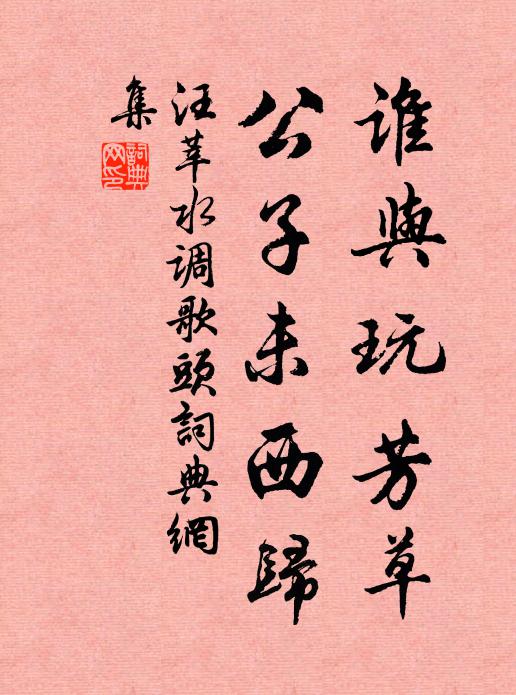 誰與玩芳草
公子未西歸
汪莘水调歌頭詞典網
集
詞典網印